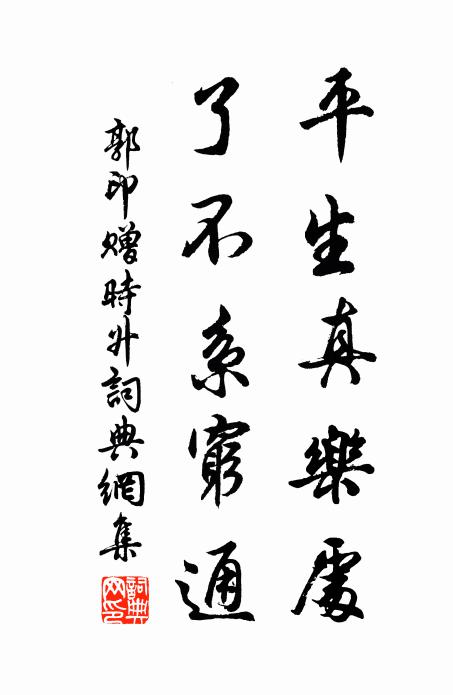 平生真樂處
了不系窮通
郭印贈時升詞典網集
詞典网印